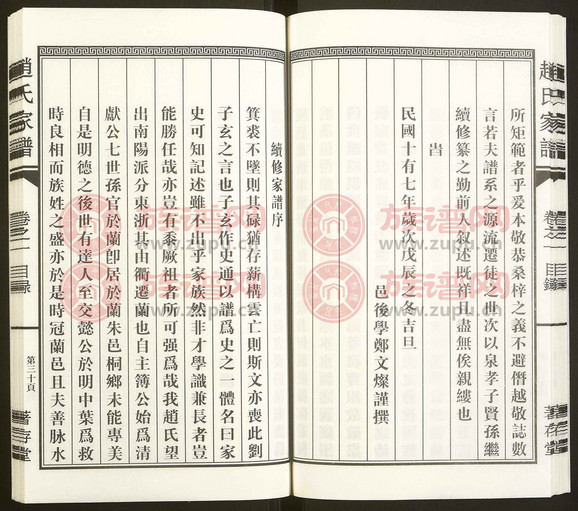 趙氏家譜
卷之一
目錄
著存堂
所矩範者乎爰本敬恭桑梓之義不避僭越敬誌數
言若夫譜系之源流遷徒之世次以泉孝子賢孫繼
續修纂之勤前人叙述既祥且盡無俟親縷也
旹
民國十有七年歲次戊辰之冬吉旦
邑後學鄭文燦謹撰
續修家譜序
箕裘不墜則其祿猶存薪構雲亡則斯文亦喪此劉
子玄之言也子玄作史通以譜爲史之一體名曰家
史可知記述雖不出乎家族然非才學識兼長者豈
能勝任哉亦豈有忝厥祖者所可强爲哉我趙氏望
出南陽派分東浙其由衢遷蘭也自主簿公始爲清
獻公七世孫官於蘭卽居於蘭朱邑桐鄉未能專美
自是明德之後世有達人至交懿公於明中葉爲救
時良相而族姓之盛亦於是時冠蘭邑且夫善脉水
趙氏家譜
卷之一
目錄
第三十頁
著存堂
族譜网
www.zupu.cn
族譜网
www.zupu.cn
族譜网
www.zupu.cn
族譜网
www.zupu.cn